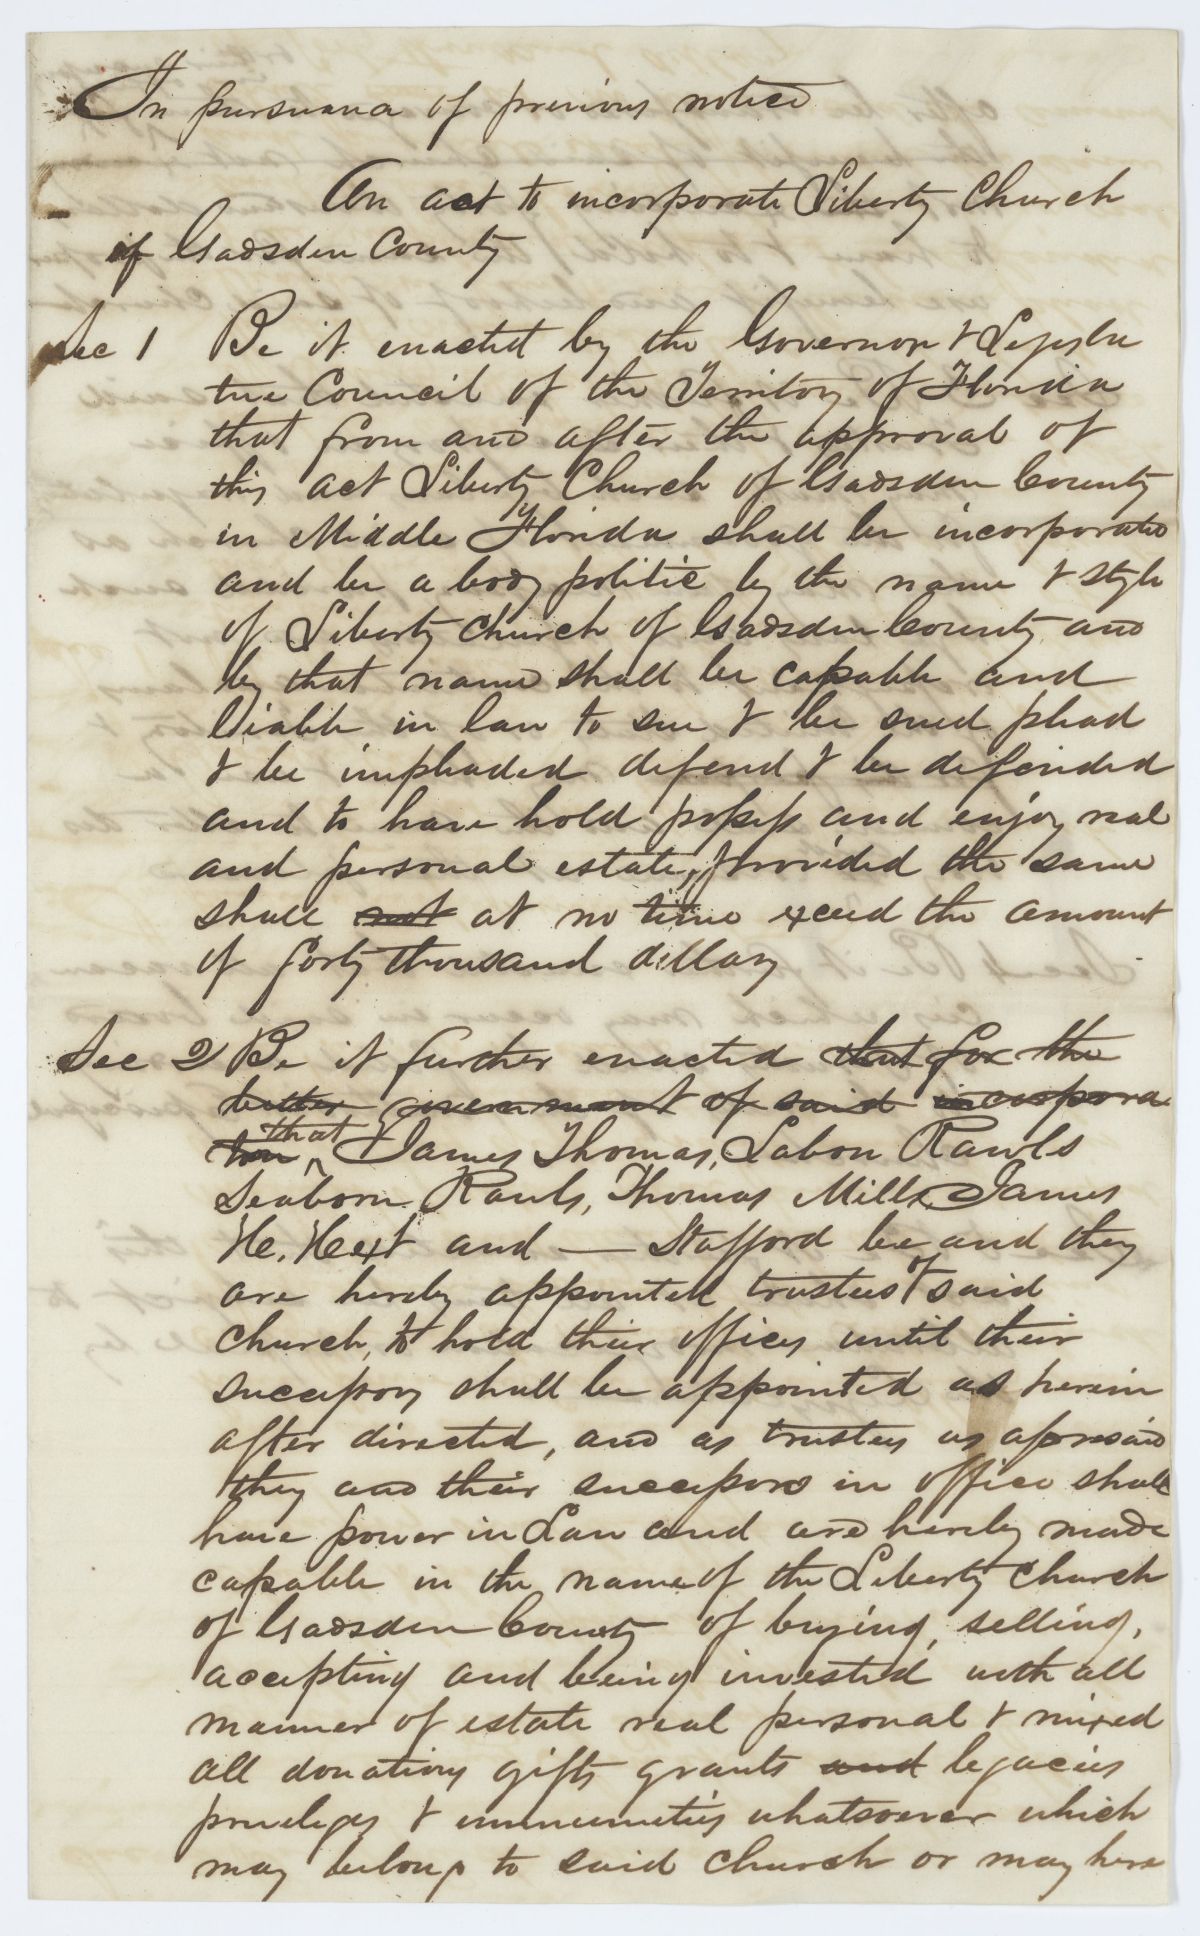 In pursuance of previous notice
An act to incorporate Liberty Church
of Gadsden County
Sec 1 Be it enacted by the Governor & Legisla
tive Council of the Territory of Florida
that from and after the approval of
this act Liberty Church of Gadsden County
in Middle Florida shall be incorporated
and be a body politic by the name & style
of Liberty Church of Gadsden County and
by that name shall be capable and
liable in law to sue & be sued plead
& be impleaded defend & be defended
and to have hold possess and enjoy real
and personal estate, provided the same
shall not at no time exceed the amount
of forty thousand dollars
Sec 2 Be it further enacted that for the
better government of said incorpora
tion that James Thomas, Labon Rawls
Seaborn Rawls, Thomas Mills, James
H. Hext and — Stafford be and they
are hereby appointed trustees of said
church, to hold their offices until their
successors shall be appointed as herein
after directed, and as trustees as aforesaid
they and their successors in office shall
have power in Law and are hereby made
capable in the name of the Liberty Church
of Gadsden County of buying, selling,
accepting and being invested with all
manner of estate real personal & mixed
all donations gifts grants and legacies
privileges & immunities whatsoever which
may belong to said church or may here